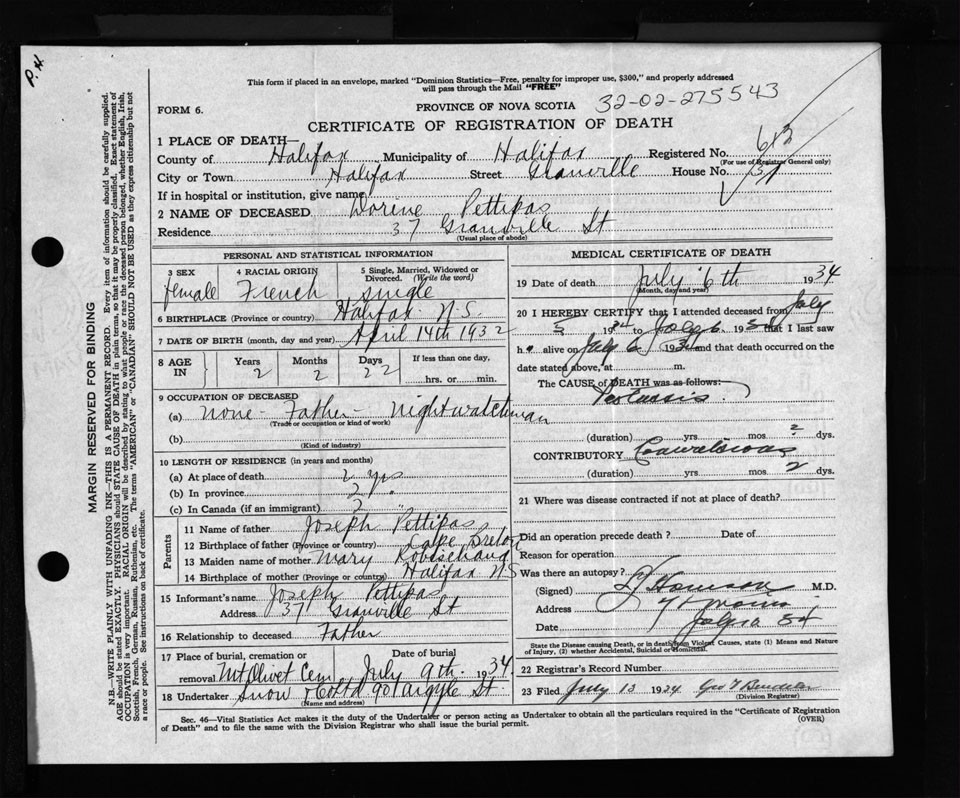 P.H.
This form if placed in an envelope, marked "Dominion Statistics—Free, penalty for improper use, $300," and properly addressed
will pass through the Mail "FREE"
FORM 6.
PROVINCE OF NOVA SCOTIA
32-02-275543
CERTIFICATE OF REGISTRATION OF DEATH
1 PLACE OF DEATH—
County of Halifax Municipality of Halifax Registered No. 612
(For use of Registrar General only)
City or Town Halifax Street Granville House No. 37
If in hospital or institution, give name
2 NAME OF DECEASED Dorine Pettipas
Residence 37 Granville St
(Usual place of abode)
PERSONAL AND STATISTICAL INFORMATION
3 SEX
female
4 RACIAL ORIGIN
French
5 Single, Married, Widowed or
Divorced. (Write the word)
single
6 BIRTHPLACE (Province or country) Halifax N.S.
7 DATE OF BIRTH (month, day and year) April 14th 1932
8 AGE IN
Years Months Days If less than one day,
2 2 22 hrs. or min.
9 OCCUPATION OF DECEASED
(a) None - Father - nightwatchman
(Trade or occupation or kind of work)
(b)
(Kind of industry)
10 LENGTH OF RESIDENCE (in years and months)
(a) At place of death 2 yrs
(b) In province 2 "
(c) In Canada (if an immigrant)
Parents
11 Name of father Joseph Pettipas
12 Birthplace of father (Province or country) Cape Breton
13 Maiden name of mother Mary
14 Birthplace of mother (Province or country) Halifax N.S
15 Informant's name Joseph Pettipas
Address 37 Granville St
16 Relationship to deceased Father
17 Place of burial, cremation or Date of burial
removal Mt Olivet Cem July 9th 1934
18 Undertaker Snow & Co Ltd 90 Argyle St.
(Name and address)
MEDICAL CERTIFICATE OF DEATH
19 Date of death July 6th 1934
(Month, day and year)
20 I HEREBY CERTIFY that I attended deceased from July
1934 to July 6 193 that I last saw
h alive on July 6 193 and that death occurred on the
date stated above, at m.
The CAUSE of DEATH was as follows:
Pertussis
(duration) yrs mos 2 dys.
CONTRIBUTORY Convulsions
(duration) yrs. mos 2 dys.
21 Where was disease contracted if not at place of death?
Did an operation precede death? Date of
Reason for operation
Was there an autopsy?
(Signed) M.D.
Address
Date 34
State the Disease causing Death, or in death from Violent Causes, state (1) Means and Nature
of Injury, (2) whether Accidental, Suicidal or Homicidal.
22 Registrar's Record Number
23 Filed July 13 1934 Geo
(Division Registrar)
Sec. 46—Vital Statistics Act makes it the duty of the Undertaker or person acting as Undertaker to obtain all the particulars required in the "Certificate of Registration
of Death" and to file the same with the Division Registrar who shall issue the burial permit.
(OVER)
MARGIN RESERVED FOR BINDING
N.B.—WRITE PLAINLY WITH UNFADING INK—THIS IS A PERMANENT RECORD. Every item of information should be carefully supplied.
AGE should be stated EXACTLY. PHYSICIANS should STATE CAUSE OF DEATH in plain terms, so that it may be properly classified. Exact statement of
OCCUPATION is very important. RACIAL ORIGIN will be described by stating to what people or race the deceased person belonged, whether English, Irish,
Scottish, French, German, Russian, Ruthenian, etc. The terms "AMERICAN" or "CANADIAN" SHOULD NOT BE USED as they express citizenship but not
a race or people. See instructions on back of certificate.